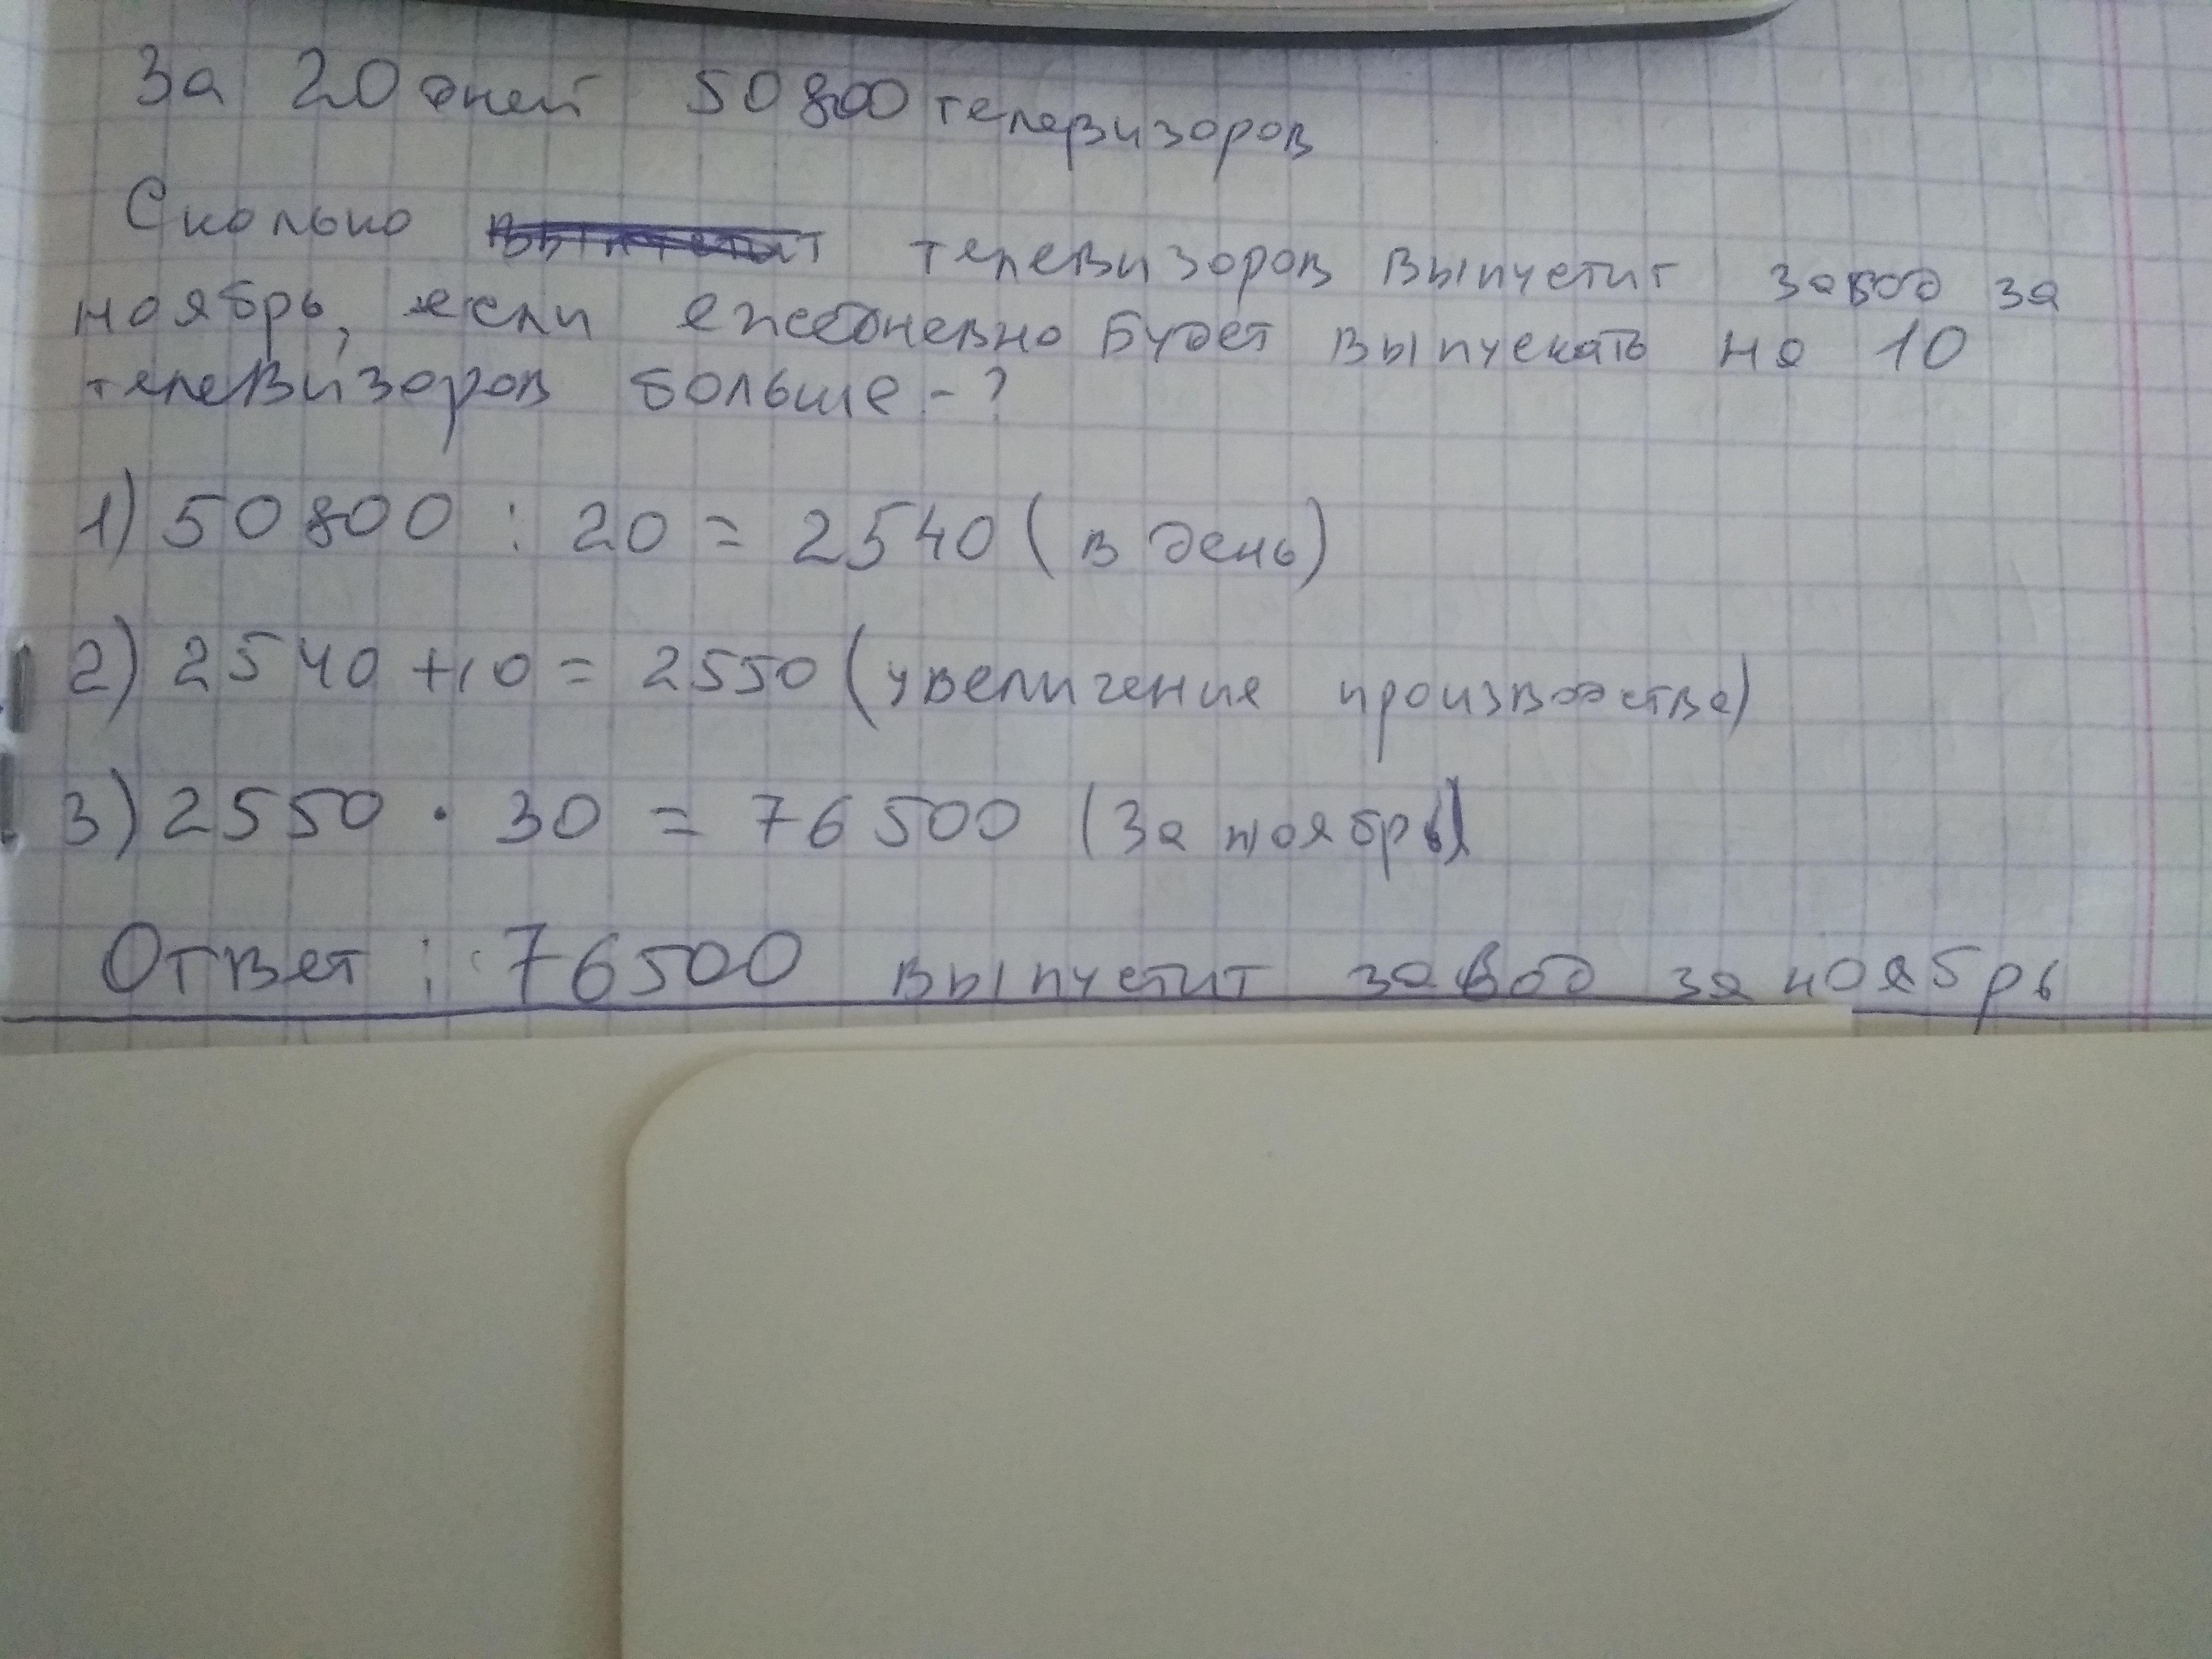 За 20 дней 50 800 телевизоров
Сколько телевизоров выпустит завод за
ноябрь, если ежедневно будет выпускать на 10
телевизоров больше - ?
1) 50 800 : 20 = 2540 (в день)
2) 2540 + 10 = 2550 (увеличения производства)
3) 2550 · 30 = 76 500 (За ноябрь)
Ответ : 76500 выпустит завод за ноябрь